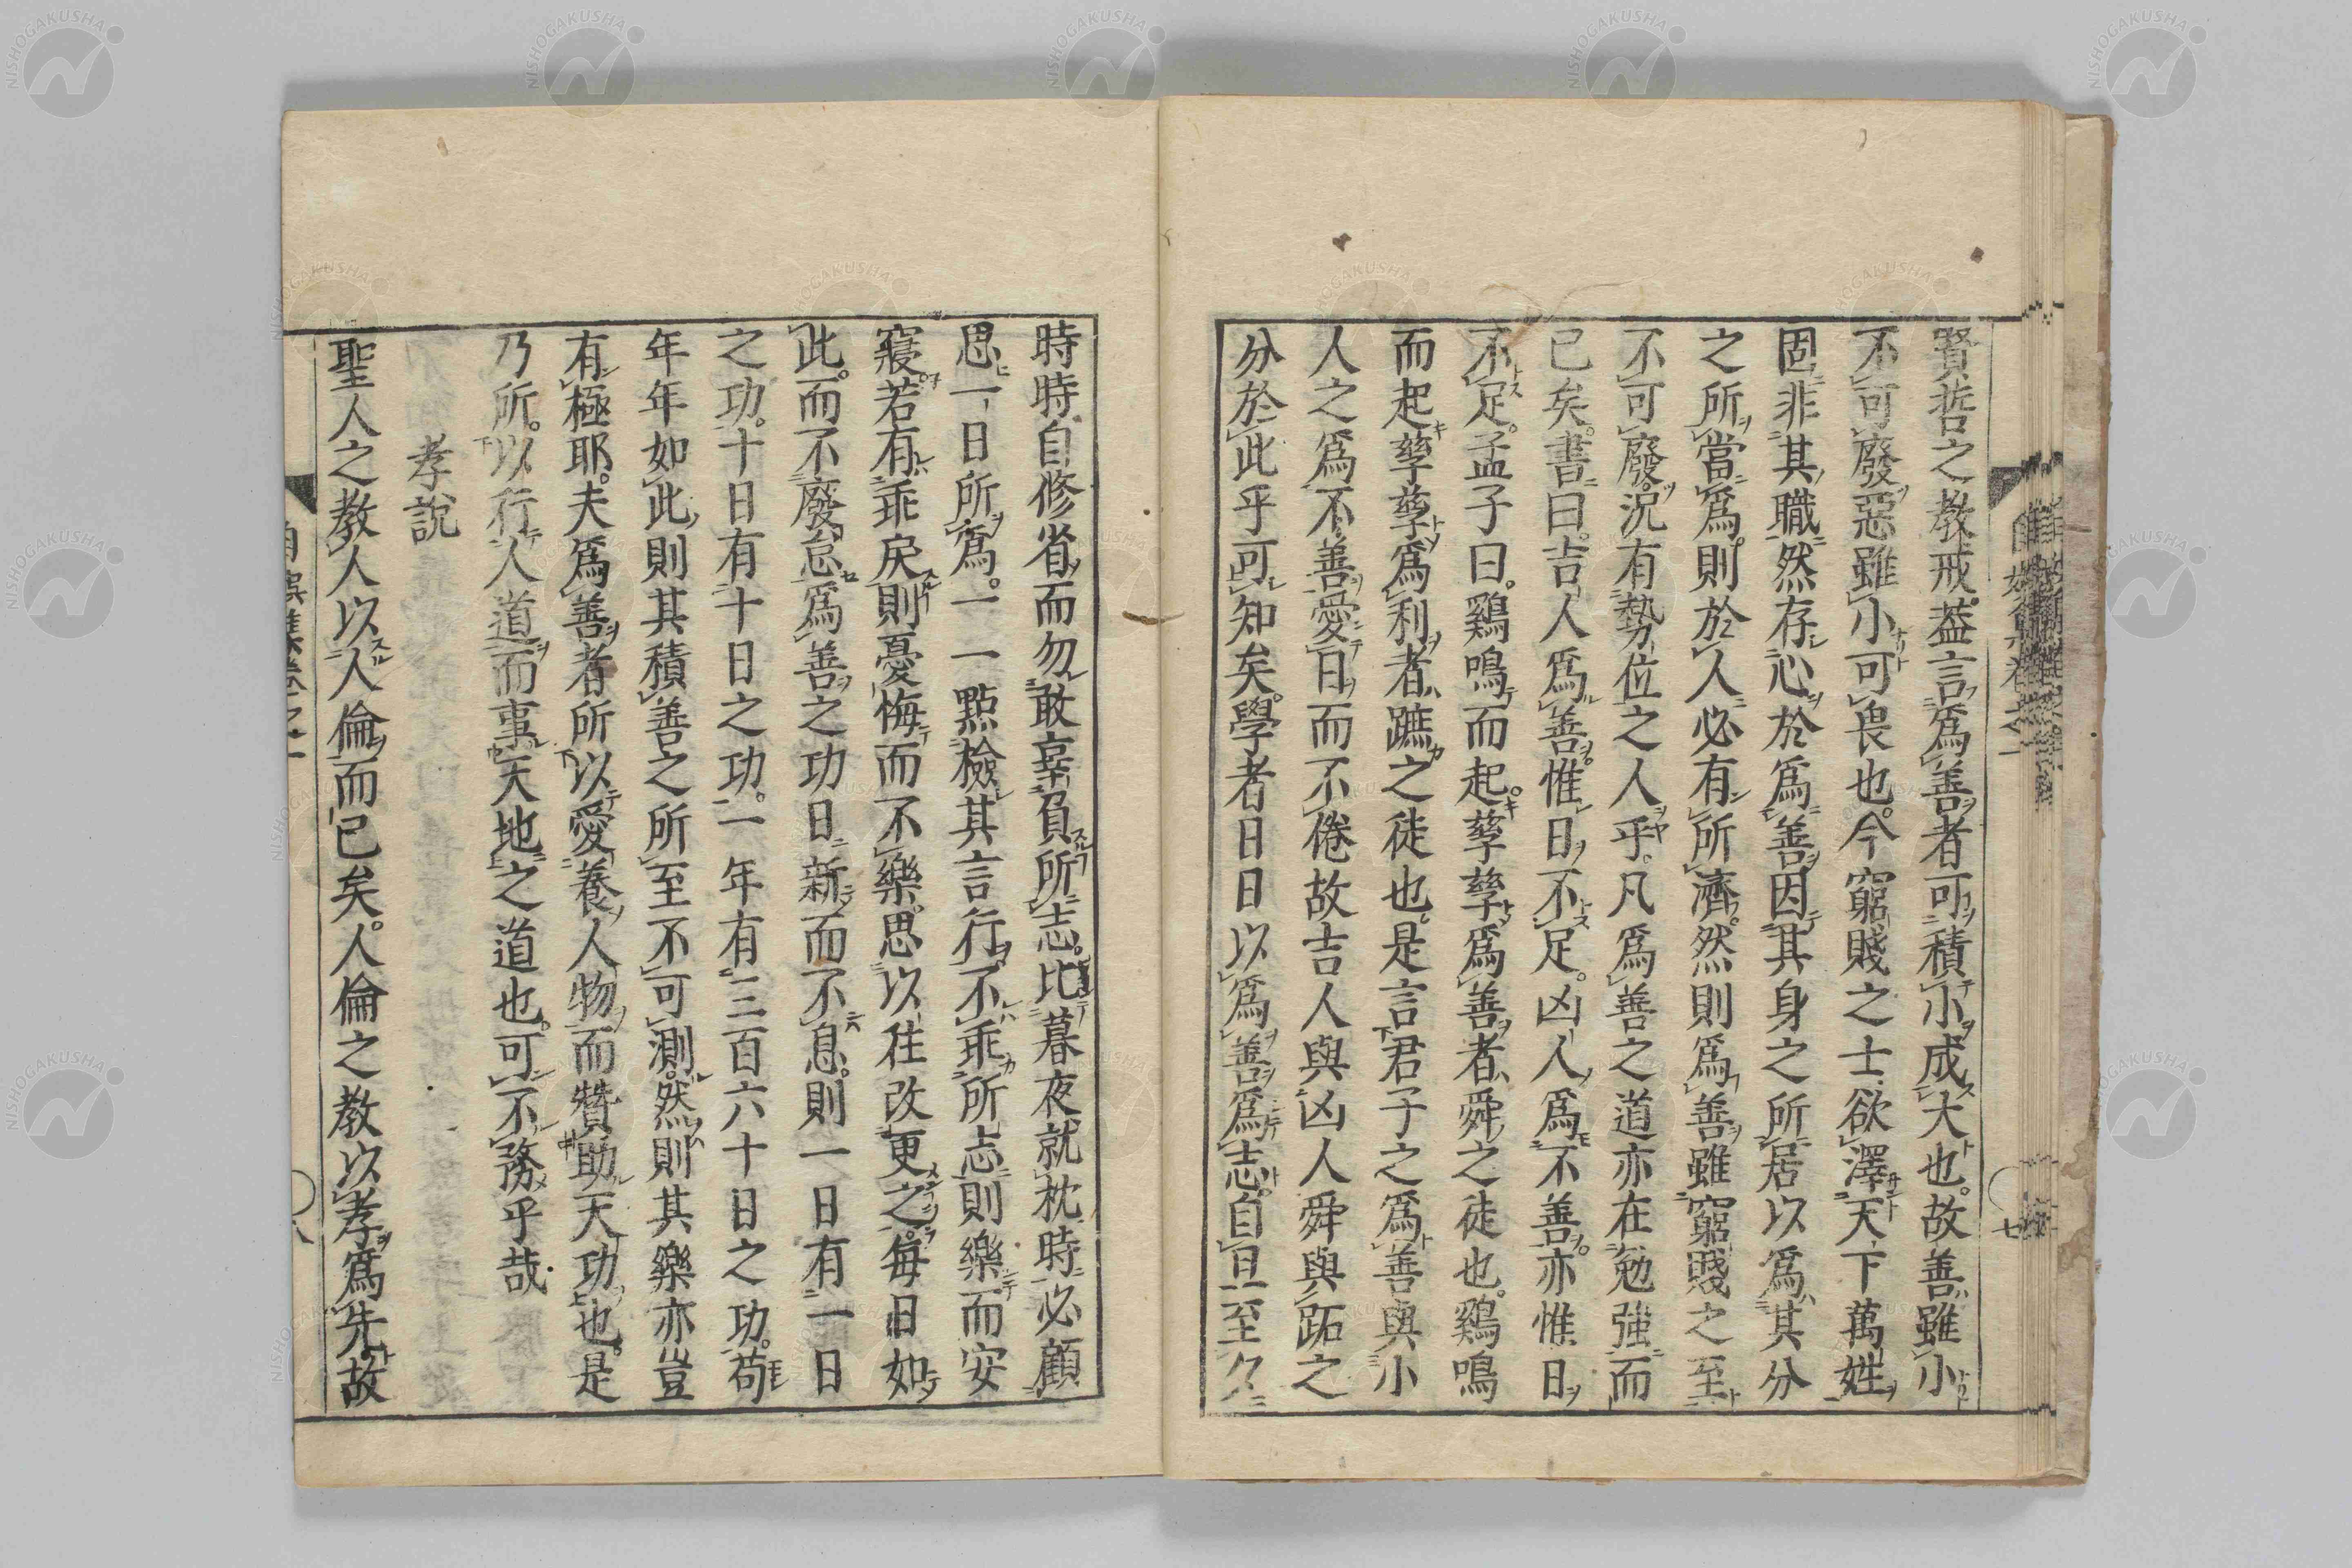 賢哲之教戒蓋言爲善者可積小成大也故善雖小
不可廢惡雖小可畏也今窮賤之士欲澤天下萬姓
固非其職然存心於爲善因其身之所居以爲其分
之所當爲則於人必有所濟然則爲善雖窮賤之至
不可廢況有勢位之人乎凡爲善之道亦在勉強而
已矣書曰吉人爲善惟日不足凶人爲不善亦惟日
不足孟子曰鷄鳴而起孳孳爲善者舜之徒也鷄鳴
而起孳孳爲利者蹠之徒也是言君子之爲善與小
人之爲不善愛日而不倦故吉人與凶人舜與跖之
分於此乎可知矣學者日日以爲善爲志自旦至夕
時時自修省而勿敢辜負所志比暮夜就枕時必顧
思一日所爲一一點檢其言行不乖所志則樂而安
寢若有乖戻則憂悔而不樂思以徃改更之每日如
此而不廢怠爲善之功日新而不息則一日有一日
之功十日有十日之功一年有三百六十日之功苟
年年如此則其積善之所至不可測然則其樂亦豈
有極耶夫爲善者所以愛養人物而贊助天功也是
乃所以行人道而事天地之道也可不務乎哉
孝說
聖人之教人以人倫而已矣人倫之教以孝爲先故